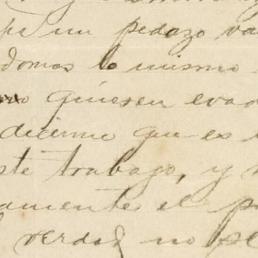 un pedazo va
domos lo mismo
quieren evad
decirme que es
ste trabajo, y
amente el p
verdad no se